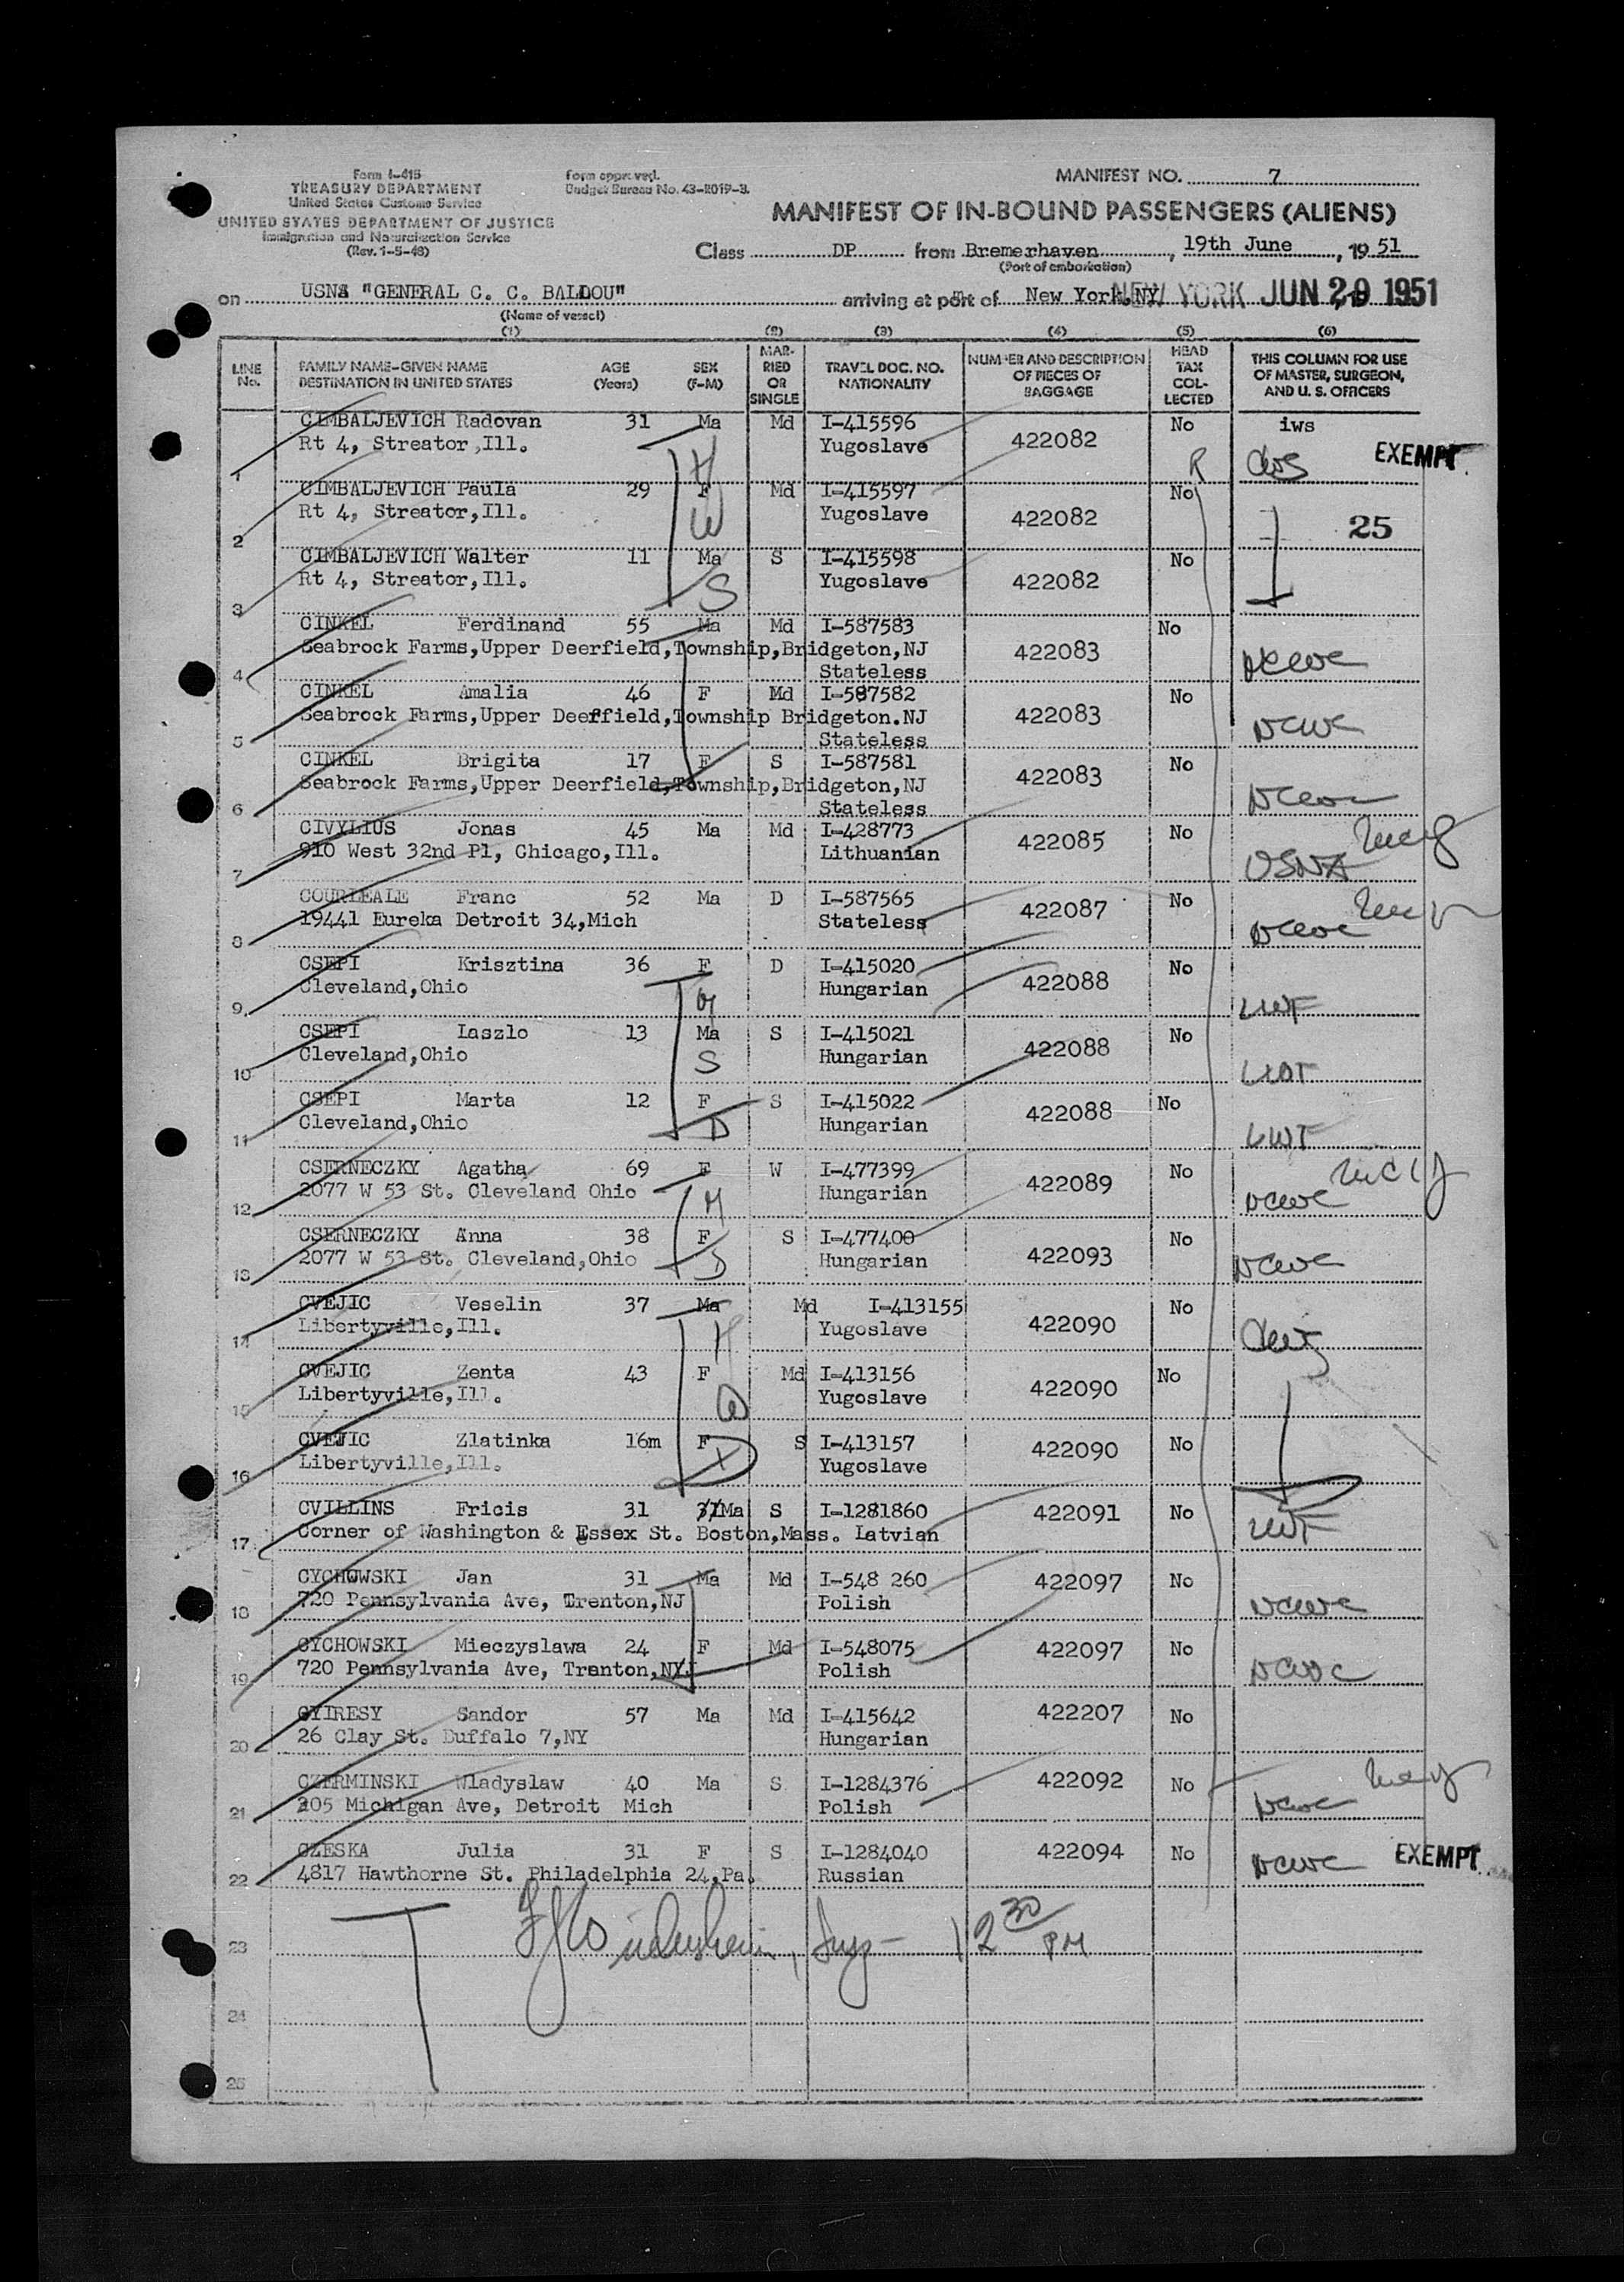 Form I-415
TREASURY DEPARTMENT
United States Customs Service
UNITED STATES DEPARTMENT OF JUSTICE
Immigration and Naturalization Service
(Rev. 1-5-48)
Form approved.
Budget Bureau No. 43-R019-3.
MANIFEST NO. 7
MANIFEST OF IN-BOUND PASSENGERS (ALIENS)
Class DP from Bremerhaven, 19th June, 19 51
(Port of embarkation)
on USNS "GENERAL C. C. BALLOU" arriving at port of New York,NY NEW YORK JUN 29 1951
(Name of vessel)
(1) (2) (3) (4) (5) (6)
LINE No. FAMILY NAME-GIVEN NAME DESTINATION IN UNITED STATES AGE (Years) SEX (F-M) MARRIED OR SINGLE TRAVEL DOC. NO. NATIONALITY NUMBER AND DESCRIPTION OF PIECES OF BAGGAGE HEAD TAX COLLECTED THIS COLUMN FOR USE OF MASTER, SURGEON, AND U. S. OFFICERS
CIMBALJEVICH Radovan 31 Ma Md I-415596 422082 No iws
1 Rt 4, Streator,Ill. Yugoslave H R CWS EXEMPT.
CIMBALJEVICH Paula 29 F Md I-415597 422082 No
2 Rt 4, Streator,Ill. Yugoslave W 25
CIMBALJEVICH Walter 11 Ma S I-415598 422082 No
3 Rt 4, Streator,Ill. Yugoslave S
CINKEL Ferdinand 55 Ma Md I-587583 422083 No
4 Seabrock Farms,Upper Deerfield,Township,Bridgeton,NJ
Stateless NCWC
CINKEL Amalia 46 F Md I-587582 422083 No
5 Seabrock Farms,Upper Deerffield,Township Bridgeton.NJ
Stateless NCWC
CINKEL Brigita 17 F S I-587581 422083 No
6 Seabrock Farms,Upper Deerfield,Township,Bridgeton,NJ
Stateless NCWC
CIVYLIUS Jonas 45 Ma Md I-428773 422085 No
7 910 West 32nd Pl, Chicago,Ill. Lithuanian USNA
COURLEALE Franc 52 Ma D I-587565 422087 No
8 19441 Eureka Detroit 34,Mich Stateless NCWC
CSEPI Krisztina 36 F D I-415020 422088 No
9 Cleveland,Ohio Hungarian M LWF
CSEPI Laszlo 13 Ma S I-415021 422088 No
10 Cleveland,Ohio Hungarian S LWF
CSEPI Marta 12 F S I-415022 422088 No
11 Cleveland,Ohio Hungarian D LWF
CSERNECZKY Agatha 69 F W I-477399 422089 No
12 2077 W 53 St. Cleveland Ohio Hungarian M NCWC
CSERNECZKY Anna 38 F S I-477400 422093 No
13 2077 W 53 St. Cleveland,Ohio Hungarian D NCWC
CVEJIC Veselin 37 Ma Md I-413155 422090 No
14 Libertyville,Ill. Yugoslave H CWS
CVEJIC Zenta 43 F Md I-413156 422090 No
15 Libertyville,Ill. Yugoslave W
CVEJIC Zlatinka 16m F S I-413157 422090 No
16 Libertyville,Ill. Yugoslave D
CVILLINS Fricis 31 31Ma S I-1281860 422091 No
17 Corner of Washington & Essex St. Boston,Mass. Latvian LWF
CYCHOWSKI Jan 31 Ma Md I-548 260 422097 No
18 720 Pennsylvania Ave, Trenton,NJ Polish NCWC
CYCHOWSKI Mieczyslawa 24 F Md I-548075 422097 No
19 720 Pennsylvania Ave, Trenton,NYJ Polish NCWC
GYIRESY Sandor 57 Ma Md I-415642 422207 No
20 26 Clay St. Buffalo 7,NY Hungarian
CZERMINSKI Wladyslaw 40 Ma S I-1284376 422092 No
21 205 Michigan Ave, Detroit Mich Polish NCWC
CZESKA Julia 31 F S I-1284040 422094 No
22 4817 Hawthorne St. Philadelphia 24,Pa. Russian NCWC EXEMPT
23 12 30 PM
24
25